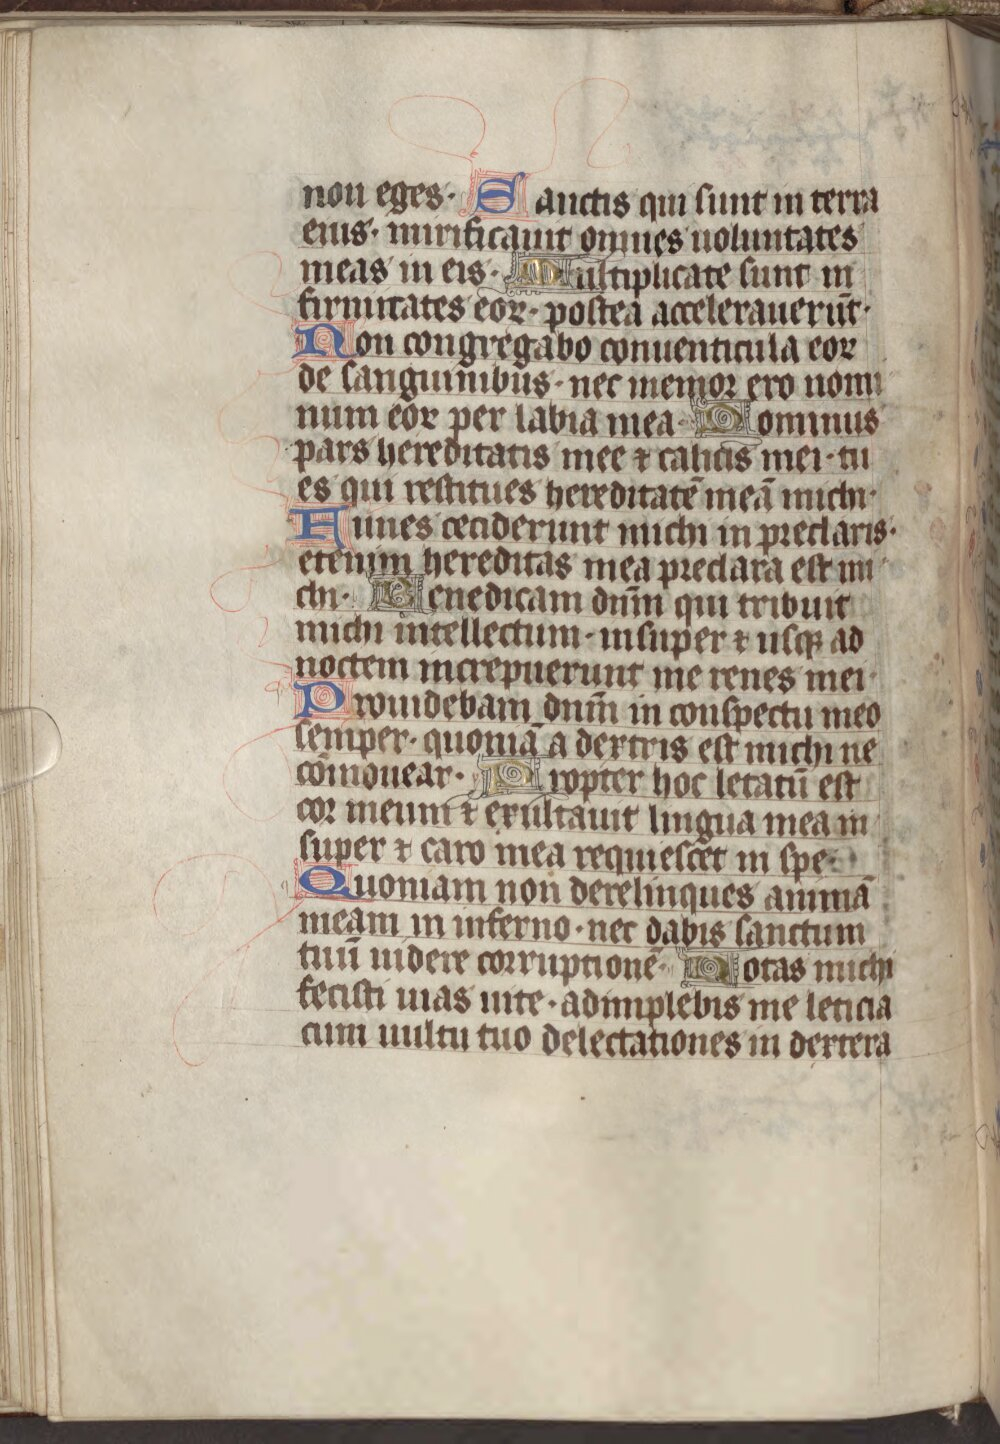 non eges· Sanctis qui sunt in terra
eius· mirificauit omnes uoluntates
meas in eis· Multiplicate sunt in
firmitates eoꝝ· postea accelerauerūt·
Non congregabo conuenticula eoꝝ
de sanguinibus· nec memor ero nomi
num eoꝝ per labia mea· Dominus
pars hereditatis mee ⁊ calicis mei· tu
es qui restitues hereditatē meā michi·
Funes ceciderunt michi in preclaris·
etenim hereditas mea preclara est mi
chi· Benedicam dn̄m qui tribuit
michi intellectum· insuper ⁊ usqꝫ ad
noctem increpuerunt me renes mei·
Prouidebam dn̄m in conspectu meo
semper· quoniā a dextris est michi ne
cōmouear· Propter hoc letatū est
cor meum ⁊ exultauit lingua mea in
super ⁊ caro mea requiescet in spe·
Quoniam non derelinques animā
meam in inferno· nec dabis sanctum
tuū uidere corruptionē· Notas michi
fecisti uias uite· adimplebis me leticia
cum uultu tuo delectationes in dextera